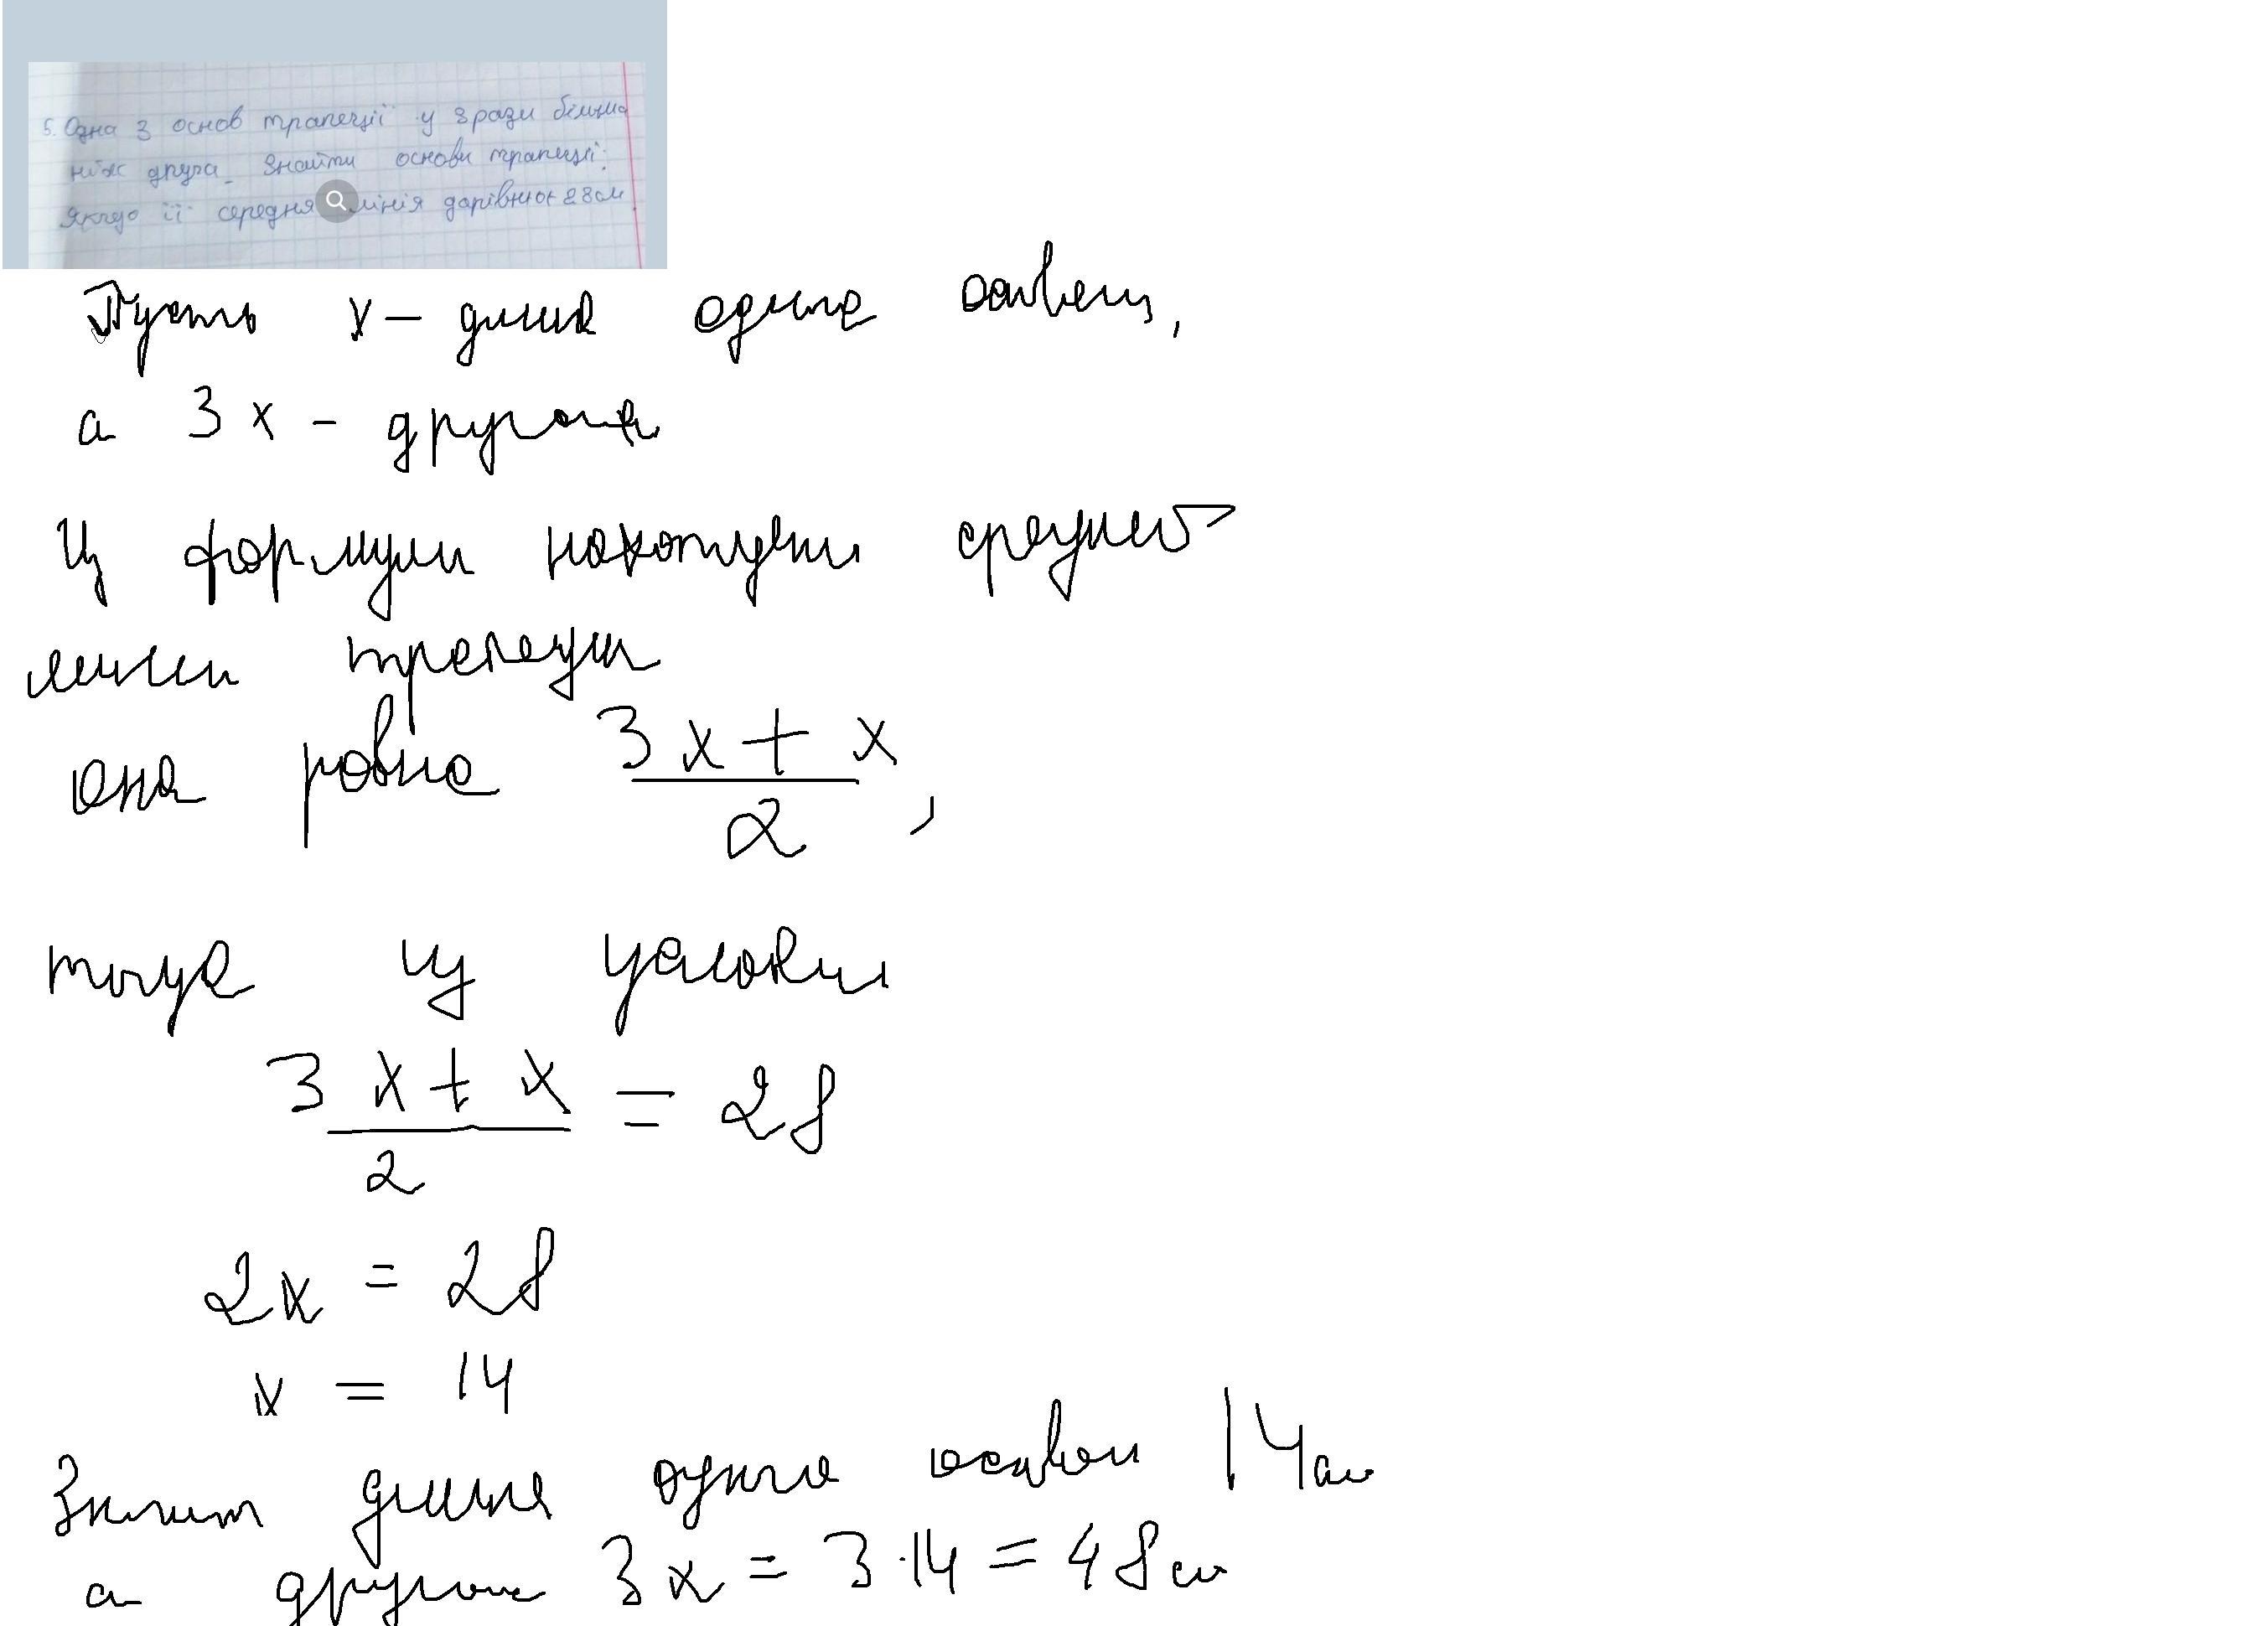 5. Одна з основ трапеції у 3 рази більша
ніж друга. Знайти основи трапеції,
якщо її середня лінія дорівнює 28 см.
Пусть x – длина одного основы,
а 3x – другога
Из формулы нахождени средней
линии трапеции
она равна \frac{3x + x}{2},
тогда из условия
\frac{3x + x}{2} = 28
2x = 28
x = 14
Значит длина одного основан 14 см
а другого 3x = 3 · 14 = 48 см